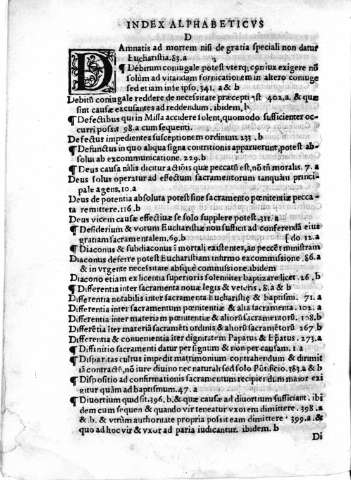 INDEX ALPHABETICVS
D
DAmnatis ad mortem nisi de gratia speciali non datur
Eucharistia. 83. a
¶ Debitum coniugale potest vterq; coniux exigere nõ
solũm ad vitandam fornicationem in altero coniuge
sed et iam inte ipso. 341. a & b
Debitũ coniugale reddere de necessitate præcepti est 402. a. & quę
sint causæ excusantes ad reddendum. ibidem. b
¶ Defectibus qui in Missa accidere solent, quomodo sufficienter oc
curri possit 98. a cum sequenti.
Defectus impedientes susceptionem ordinum 231. b
¶ Defunctus in quo aliqua signa contritionis apparuerunt, potest ab
solui ab excommunicatione. 229. b
¶ Deus causa nālis dicitur actõis que peccatũ est, nõ tñ moralis. 7. a
Deus solus operatur ad effectum sacramentorum tanquàm princi
pale agens. 10. a
Deus de potentia absoluta potest sine sacramento pœnitentiæ pecca
ta remittere. 116. b
Deus vicem causæ effectiuæ se solo supplere potest. 311. a
¶ Desiderium & votum Eucharistiæ nou sufficit ad conferendā eius
gratiam sacramentalem. 69. b [do. 12. a
¶ Diaconus & subdiaconus ī mortali existentes, an peccēt ministram
Diaconus deferre potest Eucharistiam infirmo excommunicato. 86. a
& in vrgente necessitate absque commissione. ibidem
Diacono etiam ex licentia superioris solemniter baptizare licet. 26. b
¶ Differentia inter sacramenta nouæ legis & veteris. 8. a & b
Differentia notabilis inter sacramenta Eucharistiæ & baptismi. 71. a
Differentia inter sacramentum pœnitentiæ & alia sacramenta. 102. a
Differentia inter materiam pœnitentiæ & aliorũ sacramētorũ. 108. b
Differētia iter materiã sacramēti ordinis & aliorũ sacramētorũ 267 b
Differentia & conuenientia iter dignitatem Papatus & Ep̄atus. 273. a
¶ Diffinitio sacramenti datur per signum & non per causam. 1. a
¶ Disparitas cultus impedit matrimonium contrahendum & dirimit
iã contractũ, nõ iure diuino nec naturali sed solo Põtificio. 383. a & b
¶ Dispositio ad confirmationis sacramentum recipiendum maior exi
gitur quàm ad baptismum. 47. a
¶ Diuortium quid sit. 396. b. & quæ causæ ad diuortium sufficiant. ibi
dem cum sequen & quando vir teneatur vxorem dimittere. 398. a
& b. & vtrùm authoritate propria possit eam dimittere. 399. a. &
quo ad hoc vir & vxor ad paria iudicantur. ibidem. b
Di